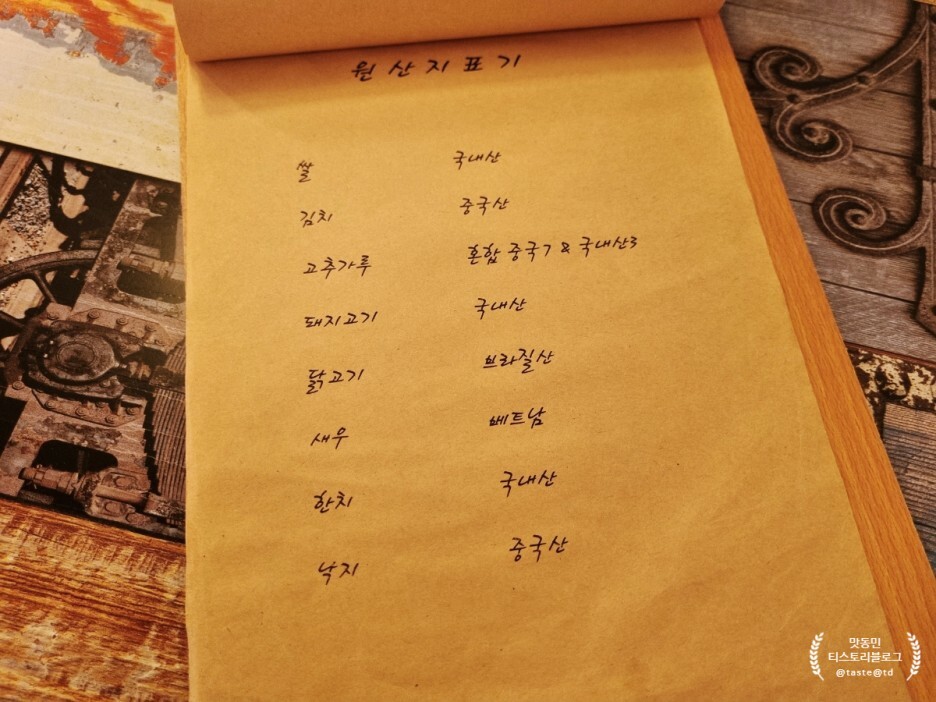 원산지표기
쌀 국내산
김치 중국산
고추가루 혼합 중국7 & 국내산3
돼지고기 국내산
닭고기 브라질산
새우 베트남
한치 국내산
낙지 중국산
맛동민
티스토리블로그
@taste@td